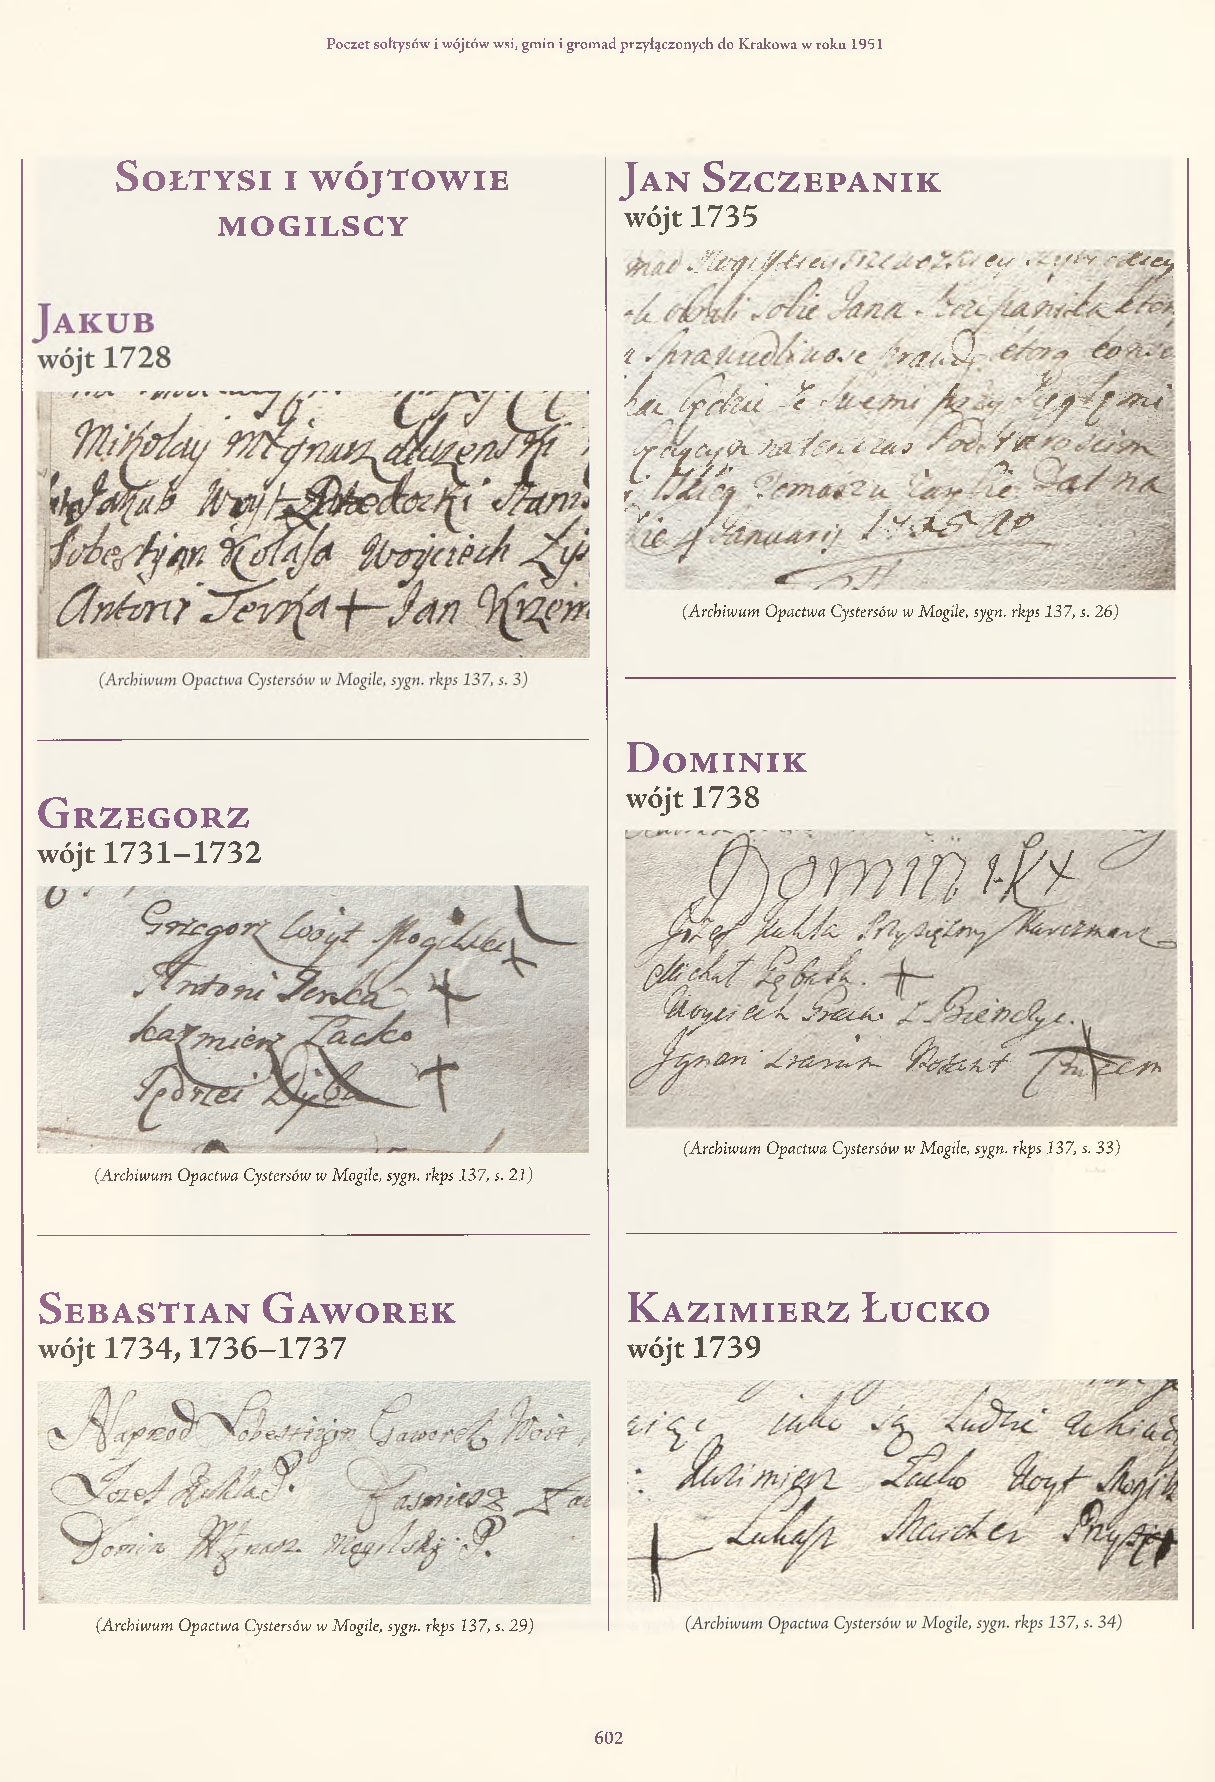 Poczet sołtysów i wójtów wsi, gmin i gromad przyłączonych do Krakowa w roku 1951
Sołtysi i wójtowie
mogilscy
Jakub
wójt 1728
Mikołay Młynarz dłuzenski
Jakub Woyt Stanis
Sobestyjan Kołaſa Woyciech
Antoni Jerzka + Jan Krzem
(Archiwum Opactwa Cystersów w Mogile, sygn. rkps 137, s. 3)
Grzegorz
wójt 1731–1732
Grzegorz Woyt Mogilski +
Antoni Jerzka +
Kazmierz Łacko
Jędrzei Dyba +
(Archiwum Opactwa Cystersów w Mogile, sygn. rkps 137, s. 21)
Sebastian Gaworek
wójt 1734, 1736–1737
Naprzod Sobestijan Gaworek Woit
Jozef Kukla P.
Domin Młynarz Mogilsky P.
(Archiwum Opactwa Cystersów w Mogile, sygn. rkps 137, s. 29)
Jan Szczepanik
wójt 1735
obrali sobie Jana Szczepanika ktor
sprawiedliwose prawdę ktorą
będzie ze swemi przysięgłemi
będącym na ten czas Podstarosciem
Tomaszu Dat na
4 Januarij 1735
(Archiwum Opactwa Cystersów w Mogile, sygn. rkps 137, s. 26)
Dominik
wójt 1738
Dominik +
Jozef Kukla Przysięzny Karczmarz
Michał +
Woyciech z Bienczyc
(Archiwum Opactwa Cystersów w Mogile, sygn. rkps 137, s. 33)
Kazimierz Łucko
wójt 1739
iako są Ludzie
Kazimierz Łucko Woyt Mogil
+ Łukasz Marcher Przysię
(Archiwum Opactwa Cystersów w Mogile, sygn. rkps 137, s. 34)
602